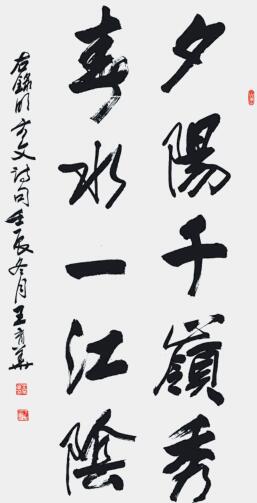 夕陽千嶺秀
春水一江陰
右錄明方文詩句壬辰冬月王育華